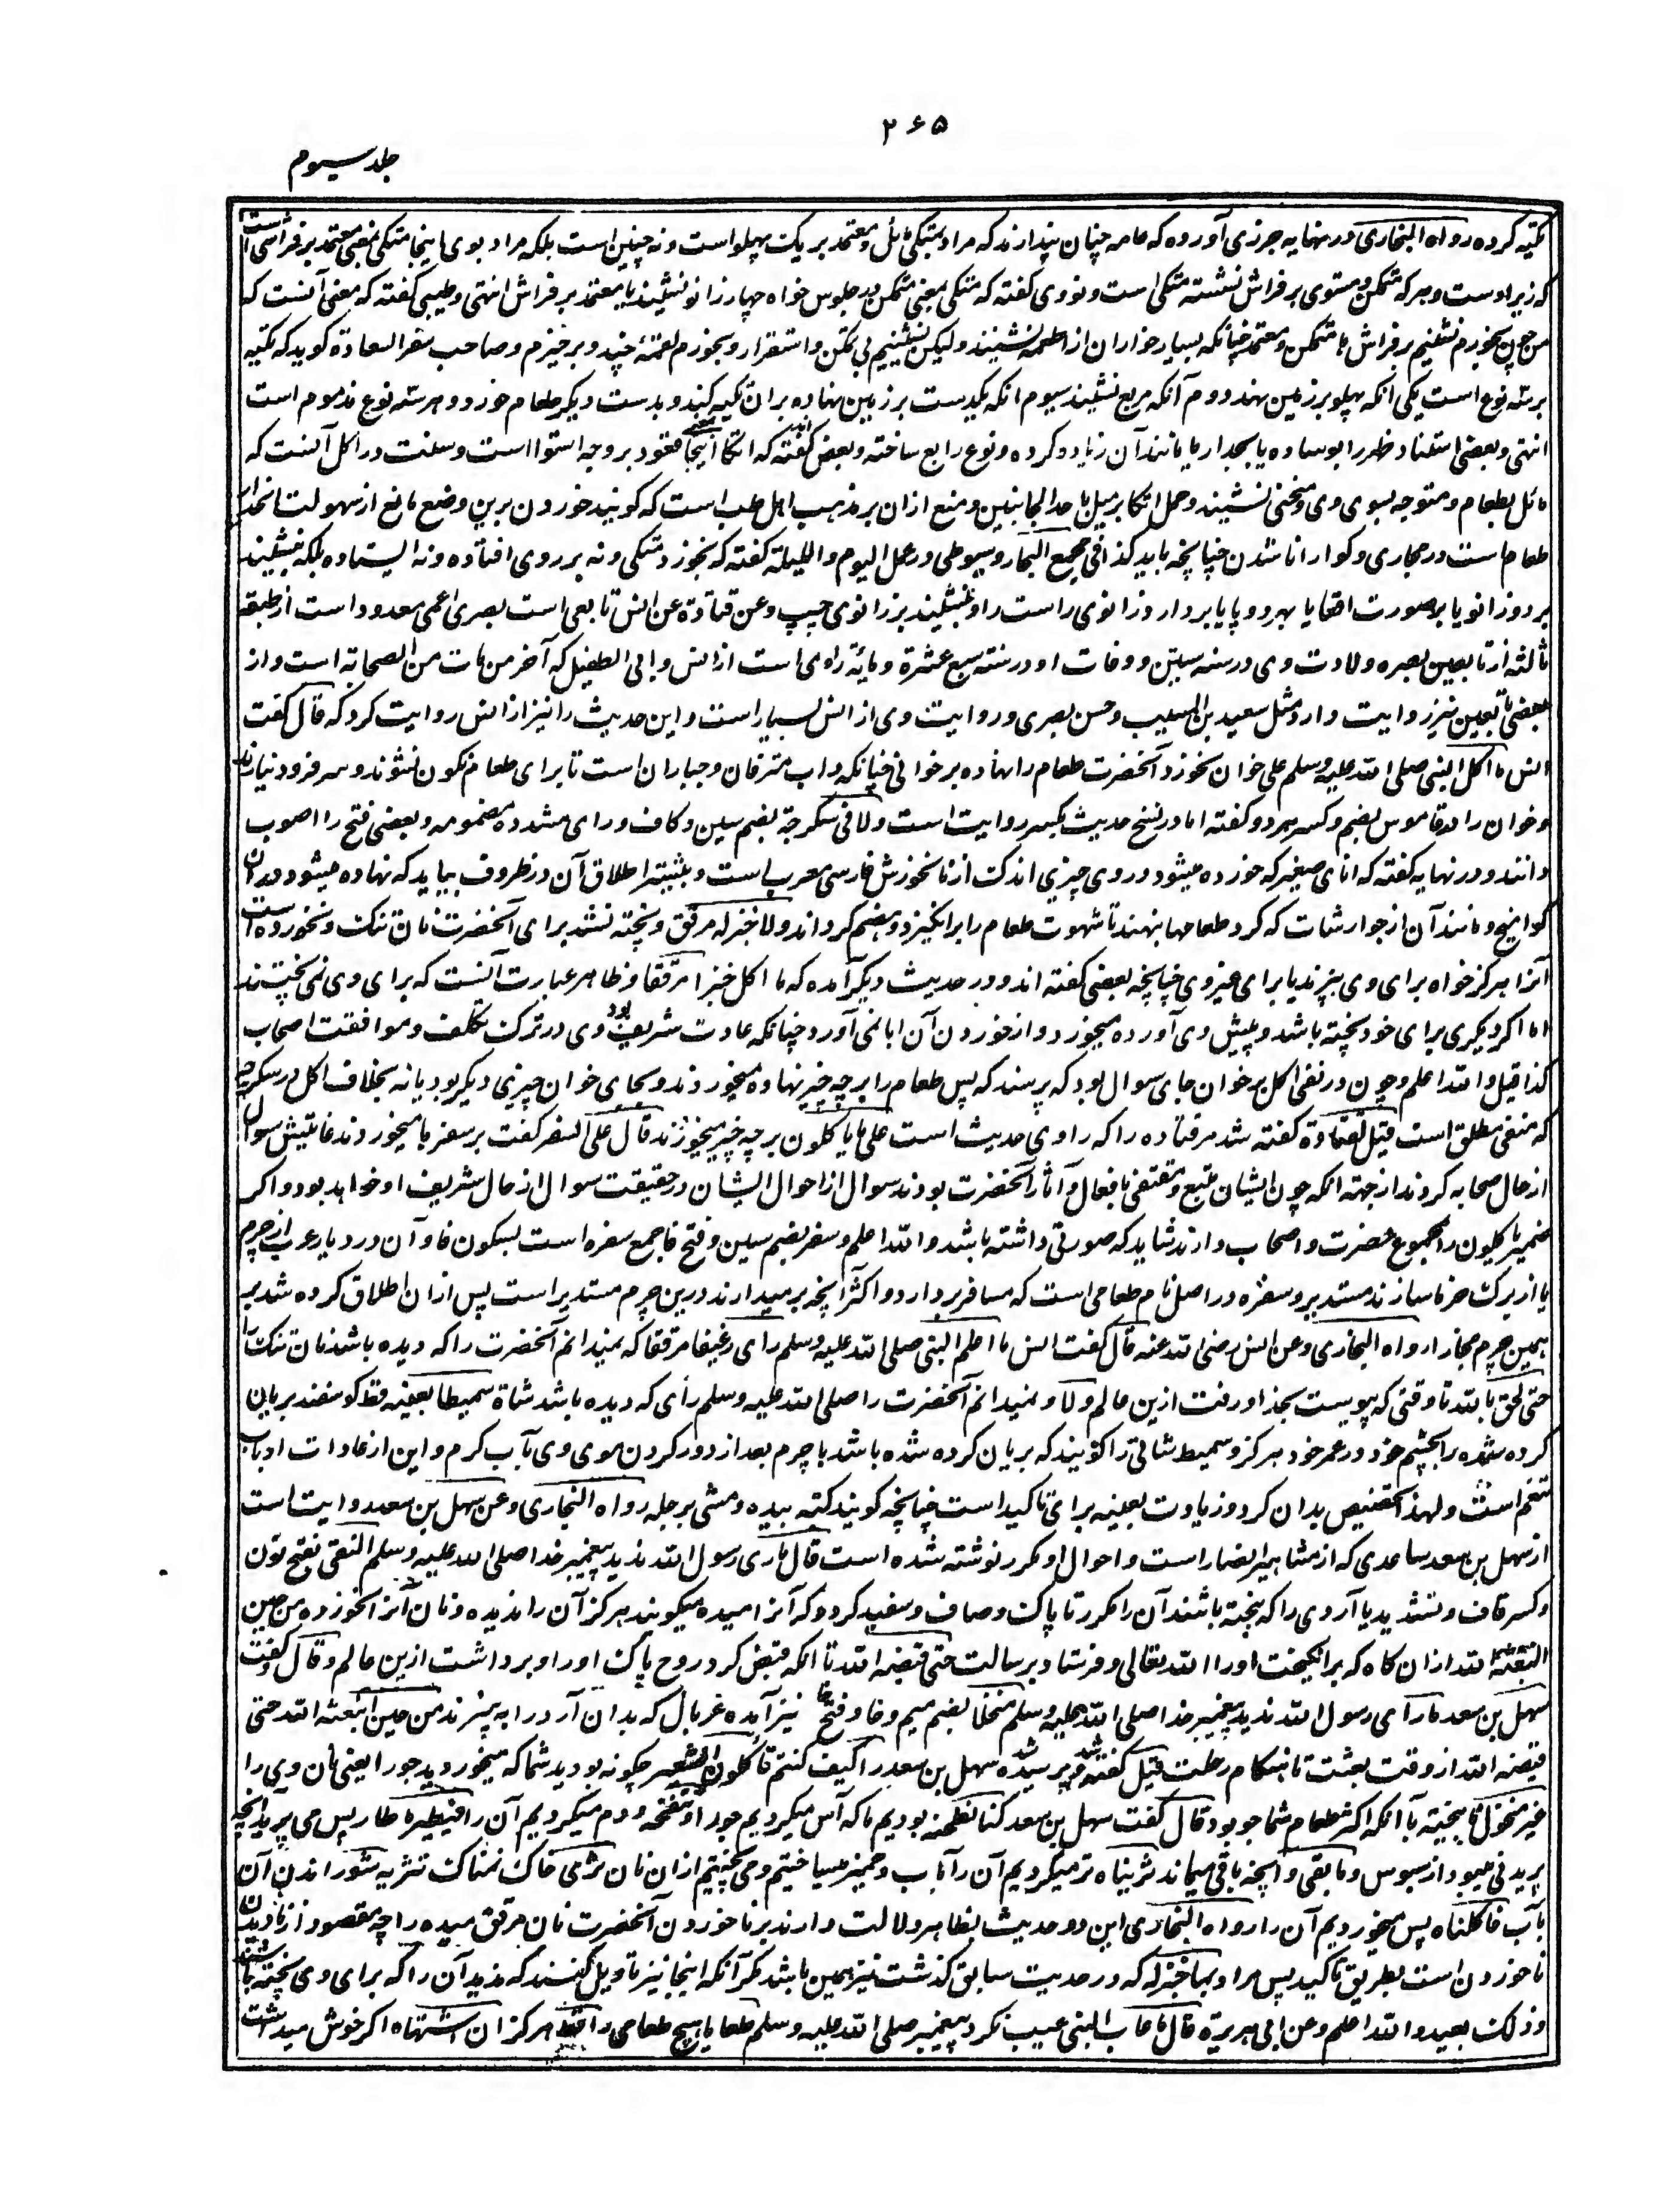 ۲۶۵
جلد سیوم
تکیه کرده رواه البخاری در نهایه جزری آورده که عامه چنان پندارند که مراد بمتکی مائل و معتمد بر یک پهلو است و نه چنین است بلکه مراد بوی اینجا متکی بمعنی معتمد بر فراشی است
که زیر اوست و هر که متمکن و مستوی بر فراش نشسته متکی است و نووی کفته که متکی بمعنی متمکن در جلوس خواه چهار زانو نشیند یا معتمد بر فراش انتهی و طیبی کفته که معنی آنست که
من چون بخورم نشینم بر فراش یا متمکن و معتمد چنانکه بسیار خواران از اطعمه نشینند ولیکن نشینیم بی تمکن و استقرار و بخورم لقمۀ چند و برخیزم و صاحب سفر السعادة کوید که تکیه
بر سه نوع است یکی انکه پهلو بر زمین نهند دوم آنکه مربع نشیند سیوم انکه یکدست بر زمین نهاده بر ان تکیه کند و بدست دیکر طعام خورد و هر سه نوع مذموم است
انتهی و بعضی استناد ظهر را بوساده یا بجدار یا مانند آن زیاده کرده و نوع رابع ساخته و بعض کفته اند که اتکا اینجا بمعنی قعود بر وجه استوا است و سنت در اکل آنست که
مائل بطعام و متوجه بسوی وی و منحنی نشیند و حمل اتکا بر میل باحد الجانبین و منع ازان بر مذهب اهل طب است که کویند خوردن برین وضع مانع از سهولت انحدار
طعام ست در مجاری و کوارا ناشدن چنانچه باید کذا فی مجمع البحار و سیوطی در عمل الیوم واللیلة کفته که نخورد متکی و نه بر روی افتاده و نه ایستاده بلکه بنشیند
بر دو زانو یا بر صورت اقعا یا بهر دو پا یا بردارد زانوی راست را و بنشیند بر زانوی چپ وعن قتادة عن انس تابعی است بصری اعمی معدود است از طبقه
ثالثه از تابعین بصره ولادت وی در سنه ستین و وفات او در سنه سبع عشرة و مائة راوی است از انس و ابی الطفیل که آخر من مات من الصحابه است و از
بعضی تابعین نیز روایت دارد مثل سعید بن المسیب و حسن بصری و روایت وی از انس بسیار است و این حدیث را نیز از انس روایت کرد که قال کفت
انس ما اکل النبی صلی الله علیه وسلم علی خوان نخورد آنحضرت طعام را نهاده بر خوانی چنانکه داب مترفان و جباران است تا برای طعام نکون نشوند و سر فرود نیارند
و خوان را در قاموس بضم و کسر هر دو کفته اما در نسخ حدیث بکسر روایت است ولا فی سکرجة بضم سین و کاف و رای مشدده مضمومه و بعضی فتح را اصوب
دانند و در نهایه کفته که انای صغیر که خورده میشود در وی چیزی اندک از نانخورش فارسی معرب است و بیشتر اطلاق آن در ظروف بیاید که نهاده میشود در ان
کوامیخ و مانند آن از جوارشات که کرد طعامها بنهند تا شهوت طعام را برانکیزد و هضم کرداند ولا خبز له مرقق و پخته نشد برای آنحضرت نان تنک و نخورده است
آنرا هرکز خواه برای وی بپزند یا برای غیر وی چنانچه بعضی کفته اند و در حدیث دیکر آمده که ما اکل خبزا مرققا و ظاهر عبارت آنست که برای وی نمی پختند
اما اکر دیکری برای خود پخته باشد و پیش وی آورده میخورد و از خوردن آن ابا نمی آورد چنانکه عادت شریف وی بود در ترک تکلف و موافقت اصحاب
کذا قیل والله اعلم و چون در نفی اکل بر خوان جای سوال بود که پرسند که پس طعام را بر چه چیز نهاده میخوردند و بجای خوان چیزی دیکر بود یا نه بخلاف اکل در سکرجه
که منفی مطلق است قیل لقتادة کفته شد مر قتاده را که راوی حدیث است علی ما یاکلون بر چه چیز میخوردند قال علی السفر کفت بر سفرها میخوردند غایتش سوال
از حال صحابه کردند از جهته انکه چون ایشان متبع و مقتفی بافعال و آثار آنحضرت بودند سوال از احوال ایشان در حقیقت سوال از حال شریف او خواهد بود و اکر
ضمیر یاکلون را بمجموع حضرت و اصحاب دارند شاید که صورتی داشته باشد والله اعلم و سفر بضم سین و فتح فا جمع سفره است بسکون فا و آن در دیار عرب از چرم
یا از برک خرما سازند مستدیر و سفره در اصل نام طعامی است که مسافر بردارد و اکثر انچه بر میدارند درین چرم مستدیر است پس ازان اطلاق کرده شد بر
همین چرم مجازا رواه البخاری وعن انس رضی الله عنه قال کفت انس ما اعلم النبی صلی الله علیه وسلم رای رغیفا مرققا که نمیدانم آنحضرت را که دیده باشد نان تنک را
حتی لحق بالله تا وقتی که پیوست بخدا و رفت ازین عالم ولا و نمیدانم آنحضرت را صلی الله علیه وسلم رای که دیده باشد شاة سمیطا بعینه قط کوسفند بریان
کرده شده را بچشم خود در عمر خود هرکز و سمیط شاتی را کویند که بریان کرده شده باشد با چرم بعد از دور کردن موی وی بآب کرم و این از عادات ارباب
تنعم است و لهذا تخصیص بدان کرد و زیادت بعینه برای تاکید است چنانچه کویند کتبه بیده و مشی برجله رواه البخاری وعن سهل بن سعد روایت است
از سهل بن سعد ساعدی که از مشاهیر انصار است و احوال او مکرر نوشته شده است قال ما رای رسول الله ندید پیغمبر خدا صلی الله علیه وسلم النقی بفتح نون
و کسر قاف و تشدید یا آردی را که بیخته باشند آن را مکرر تا پاک و صاف و سفید کردد که آنرا میده میکویند هرکز آن را ندیده و نان آنرا نخورده من حین
ابتعثه الله ازان کاه که برانکیخت او را الله تعالی و فرستاد برسالت حتی قبضه الله تا انکه قبض کرد روح پاک او را و برداشت ازین عالم وقال و کفت
سهل بن سعد ما رای رسول الله ندید پیغمبر خدا صلی الله علیه وسلم منخلا بضم میم و خا و فتح خا نیز آمده غربال که بدان آرد را به بیزند من حین ابتعثه الله حتی
قبضه الله از وقت بعثت تا هنکام رحلت قیل کفته شد و پرسیده شد سهل بن سعد را کیف کنتم تاکلون الشعیر چکونه بودید شما که میخوردید جو را یعنی نان وی را
غیر منخول نا بیخته با انکه اکثر طعام شما جو بود قال کفت سهل بن سعد کنا نطحنه بودیم ما که آس میکردیم جو را و ننفخه و دم میکردیم آن را فیطیر ما طار پس می پرید آنچه
پرید نی میبود از سبوس و ما بقی و انچه باقی میماند ثریناه تر میکردیم آن را بآب و خمیر میساختیم و می پختیم ازان نان ثری خاک نمناک تثریه شوراندن آن
بآب فاکلناه پس میخوردیم آن را رواه البخاری این دو حدیث بظاهر دلالت دارند بر ناخوردن آنحضرت نان مرقق میده را چه مقصود از نادیدن
ناخوردن است بطریق تاکید پس مراد بما خبز له که در حدیث سابق کذشت نیز همین باشد مکر آنکه اینجا نیز تاویل کنند که ندید آن را که برای وی پخته باشند
وذلک بعید والله اعلم وعن ابی هریرة قال ما عاب النبی عیب نکرد پیغمبر صلی الله علیه وسلم طعاما هیچ طعامی را قط هرکز ان اشتهاه اکر خوش میداشت